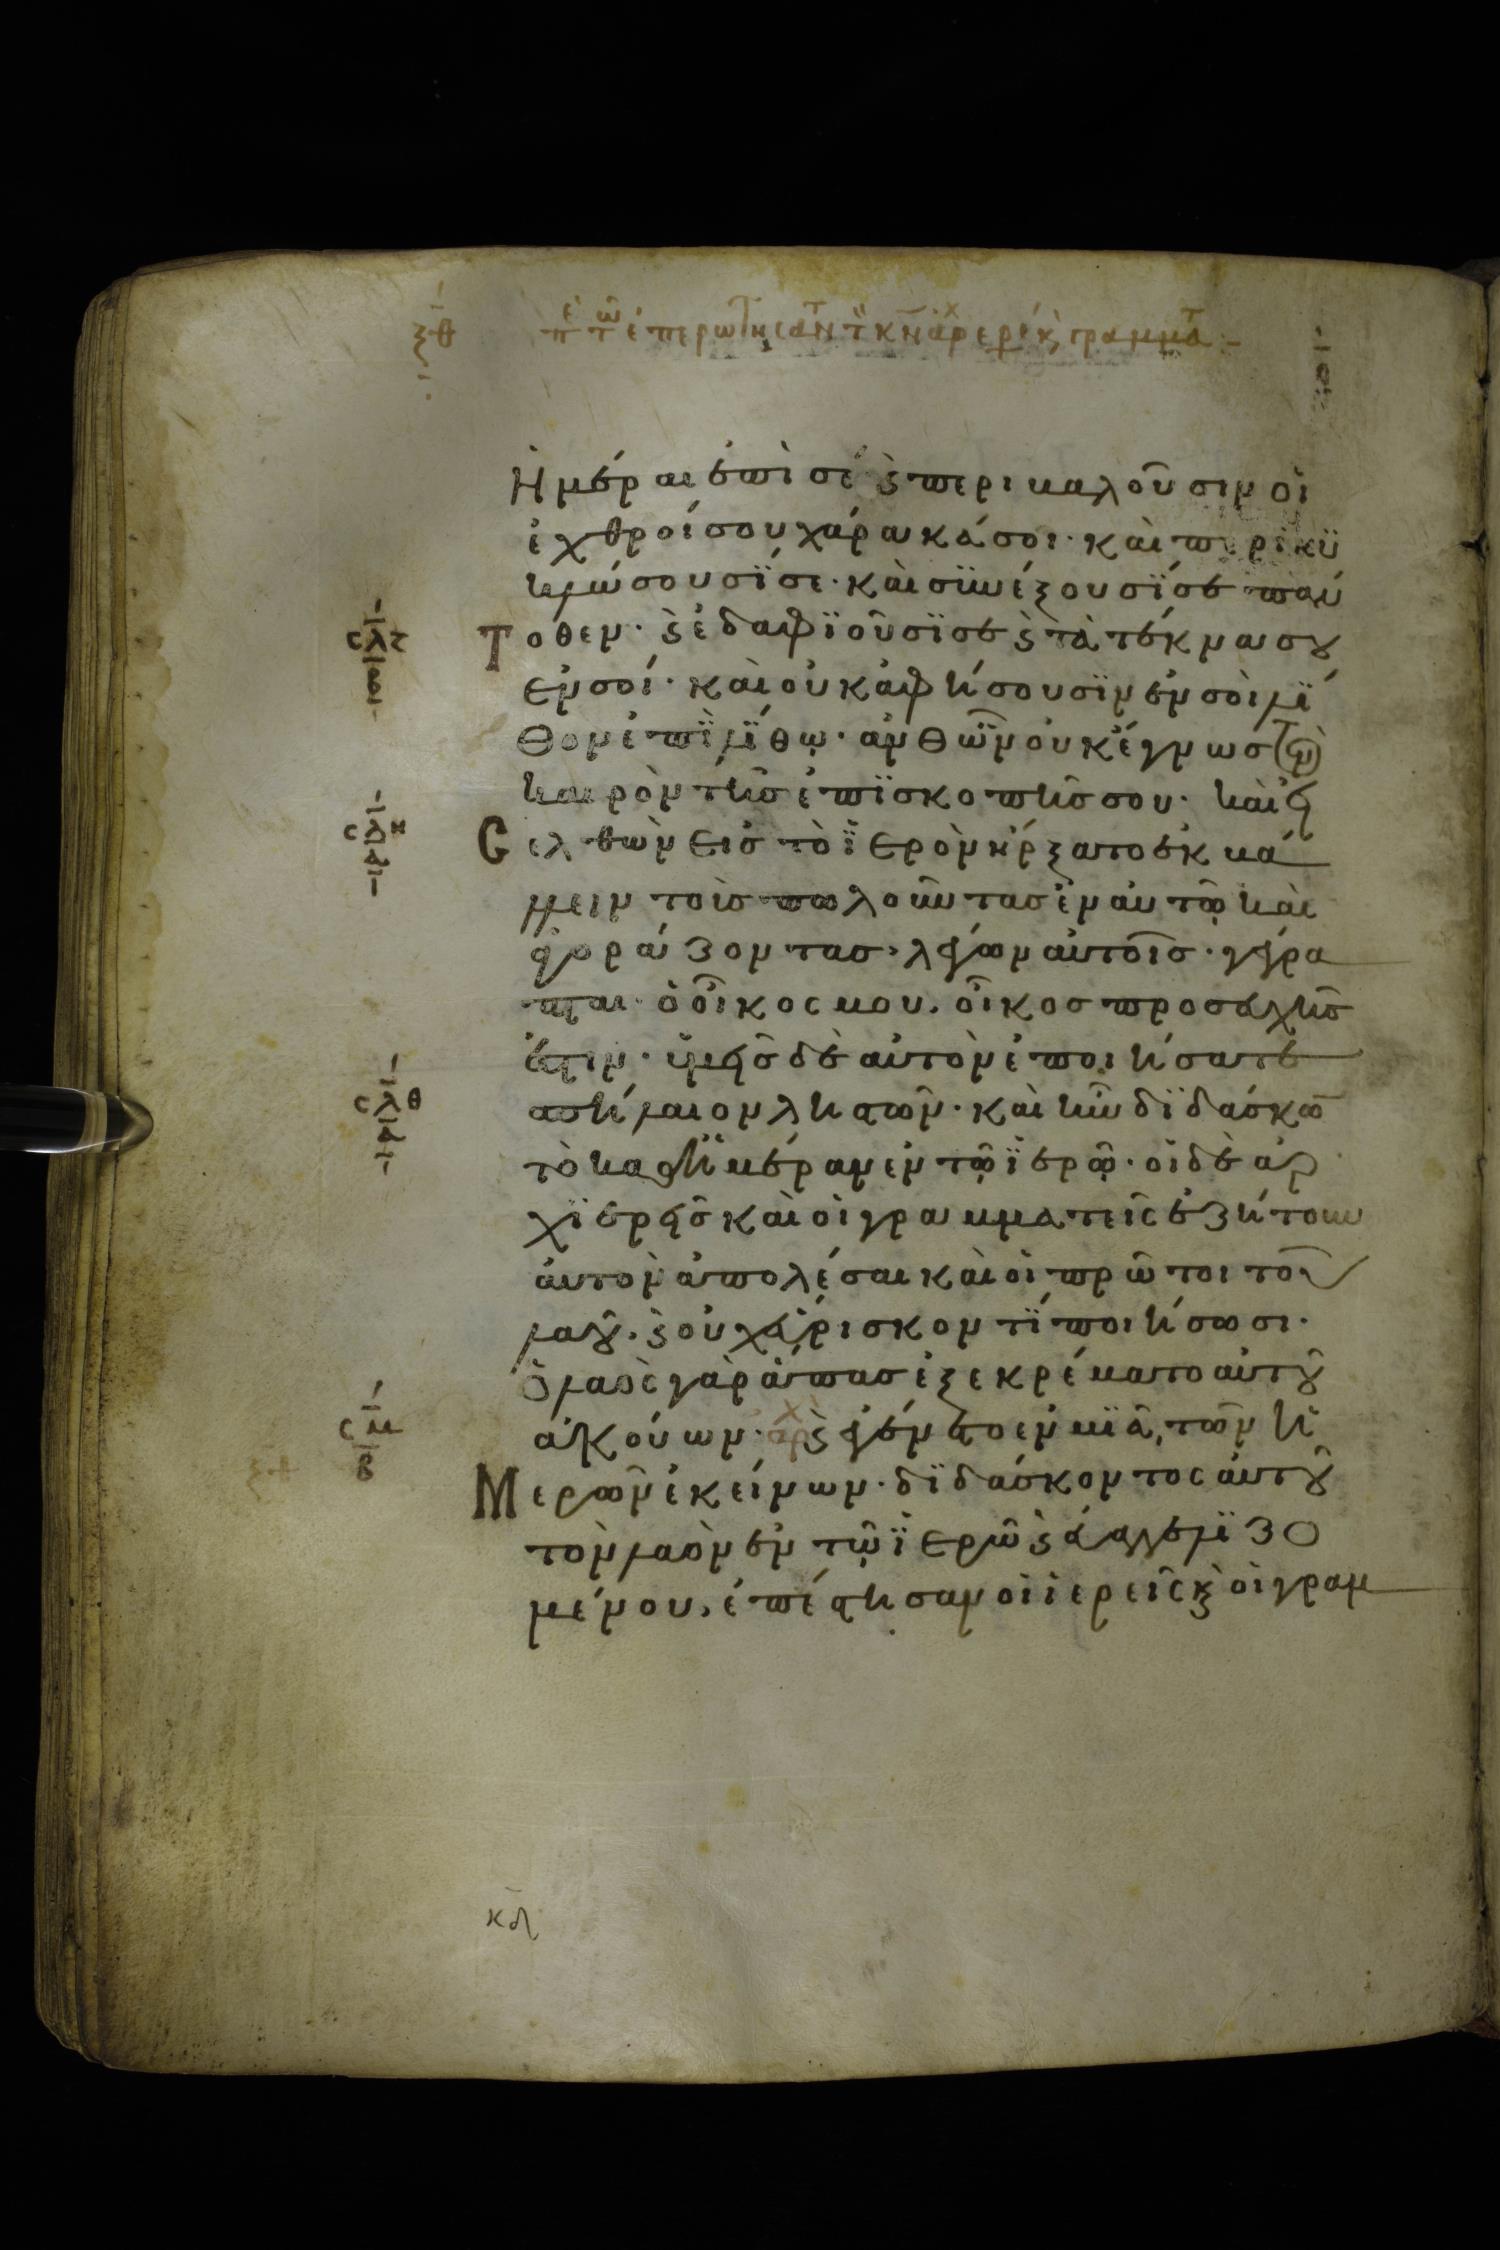 ξθ
π ε τ ων επερωτησαντ τ κν αρχερε κ γραμματ
ἡμέραι ἐπὶ σὲ ϛ περικαλοῦσιν οἱ
ἐχθροί σου χάρακά σοι· καὶ περικϋ
κλώσουσϊ σε· καὶ σϋνέξουσϊ σε πάν
τοθεν· ϛ ἐδαφϊοῦσϊ σε ϛ τὰ τέκνα σου
ἐν σοί· καὶ οὐκ ἀφήσουσϊν ἐν σοὶ λΐ
θον ἐπῒ λΐθῳ· ἀνθ ὧν οὐκ ἔγνως τὸν
καιρὸν τῆς ἐπϊσκοπῆς σου· καὶ εἰ
σελθὼν εἰς τὸ ϊερὸν ἤρξατο ἐκβά
λλειν τοὺς πωλοῦντας ἐν αὐτῷ καὶ
ἀγοράζοντας· λέγων αὐτοῖς· γέγρα
πται· ὁ οἶκος μου, οἶκος προσευχῆς
ἐστιν· ὑμεῖς δὲ αὐτὸν ἐποιήσατε
σπήλαιον λῃστῶν· καὶ ἦν δϊδάσκων
τὸ καθ ἡμέραν ἐν τῷ ϊερῷ· οἱ δὲ ἀρ
χϊερεῖς καὶ οἱ γραμματεῖς ἐζήτουν
αὐτὸν ἀπολέσαι καὶ οἱ πρῶτοι τοῦ
λαοῦ· ϛ οὐχ εὕρισκον τΐ ποιήσωσι·
ὁ λαὸς γὰρ ἅπας ἐξεκρέματο αὐτοῦ
ἀκούων· αρχ ϛ ἐγένετο ἐν μϊᾷ, τῶν ἡ
μερῶν ἐκείνων· δϊδάσκοντος αὐτοῦ
τὸν λαὸν ἐν τῷ ϊερῶ ϛ εὐαγγελϊζο
μένου, ἐπέστησαν οἱ ἱερεῖς κ οἱ γραμ
σλζ
ι
σλη
α
σλθ
α
σμ
β
κδ